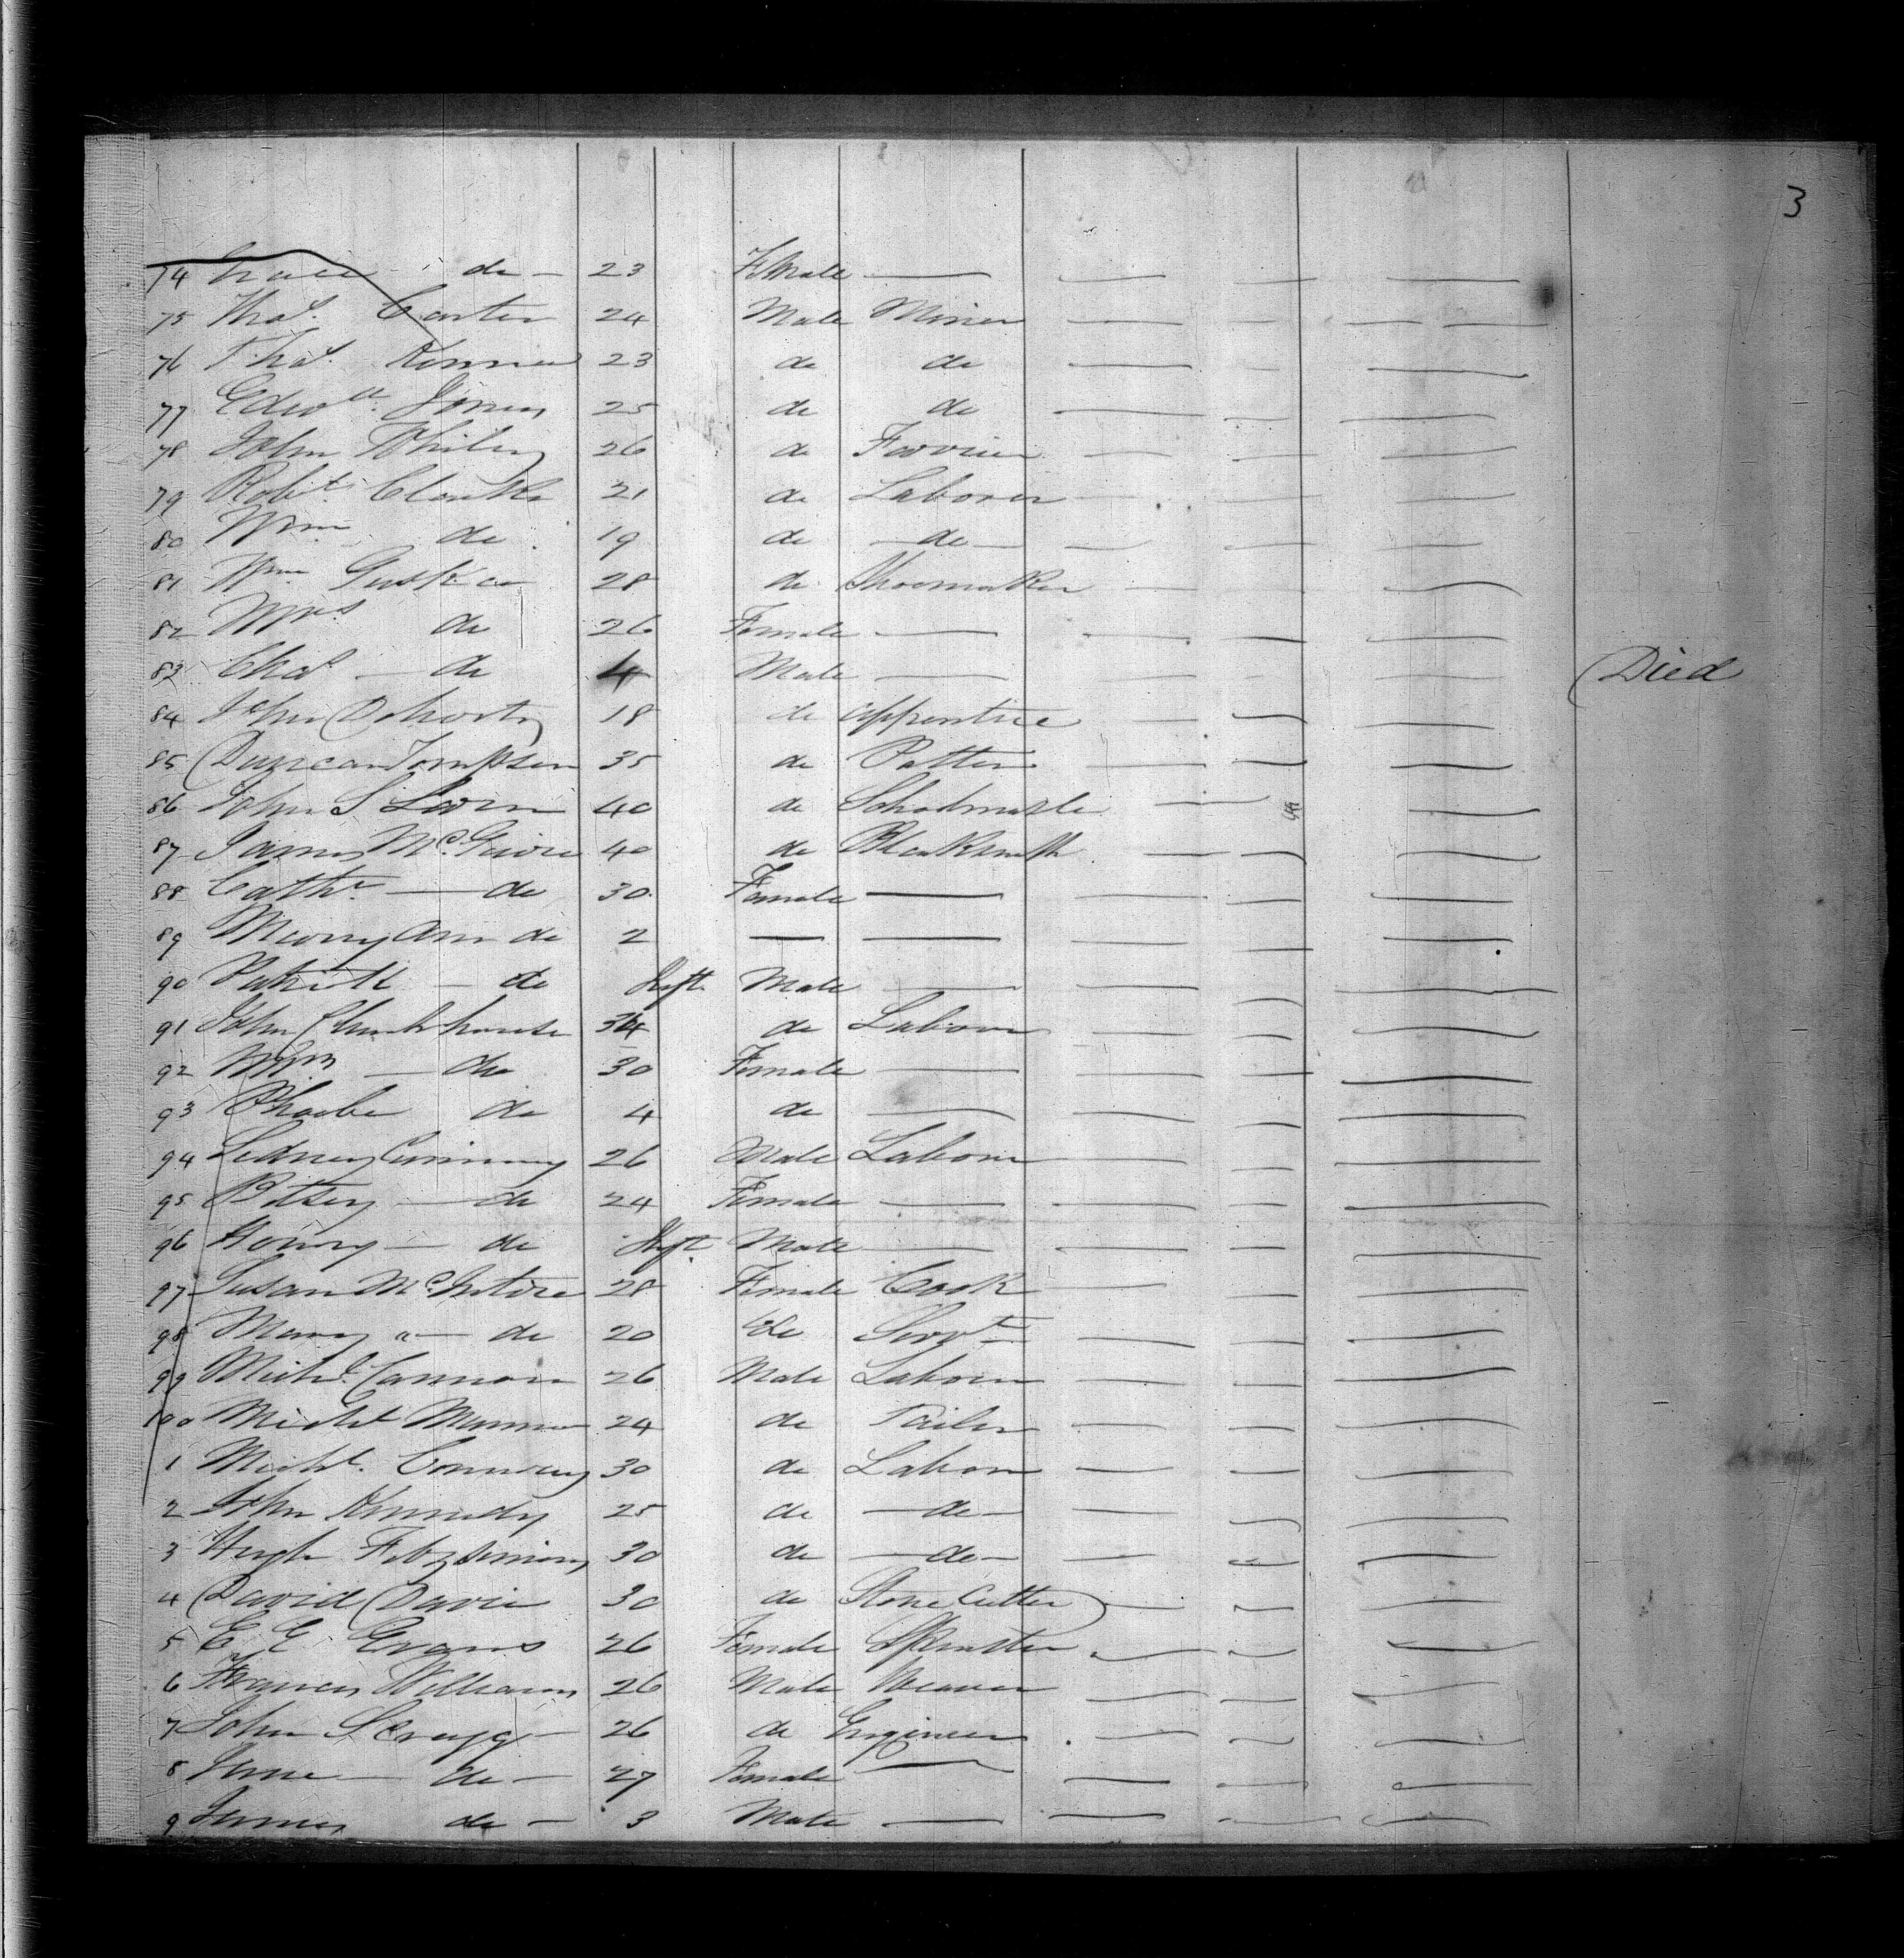 3
74 Grace do 23 Female
75 Thos. Carter 24 Male Miner
76 Thos. 23 do do
77 Edwd. Jones 25 do do
78 John 26 do Farrier
79 Robt. Clark 21 do Laborer
80 Wm do 19 do do
81 Wm 28 do Shoemaker
82 Mrs do 26 Female
83 Chas do 4 Male Died
84 John Dohorty 18 do Apprentice
85 Duncan Tompson 35 do
86 John S 40 do
87 James McGuire 40 do Blacksmith
88 Cathe do 30 Female
89 Mary Ann do 2
90 Patrick do Inft Male
91 John 34 do Laborer
92 do 30 Female
93 Phoebe do 4 do
94 Sidney 26 Male Laborer
95 Betsey do 24 Female
96 Henry do Inft Male
97 Susan McIntire 28 Female Cook
98 Mary do 20 do Servt
99 Michl. Cannon 26 Male Laborer
100 Michl 24 do Tailor
1 Michl. Conway 30 do Laborer
2 John Kennedy 25 do do
3 Hugh Fitzsimmons 30 do do
4 David Davis 30 do Stone Cutter
5 E E Evans 26 Female Spinster
6 Francis Williams 26 Male Weaver
7 John Scragg 26 do Engineer
8 do 27 Female
9 James do 3 Male